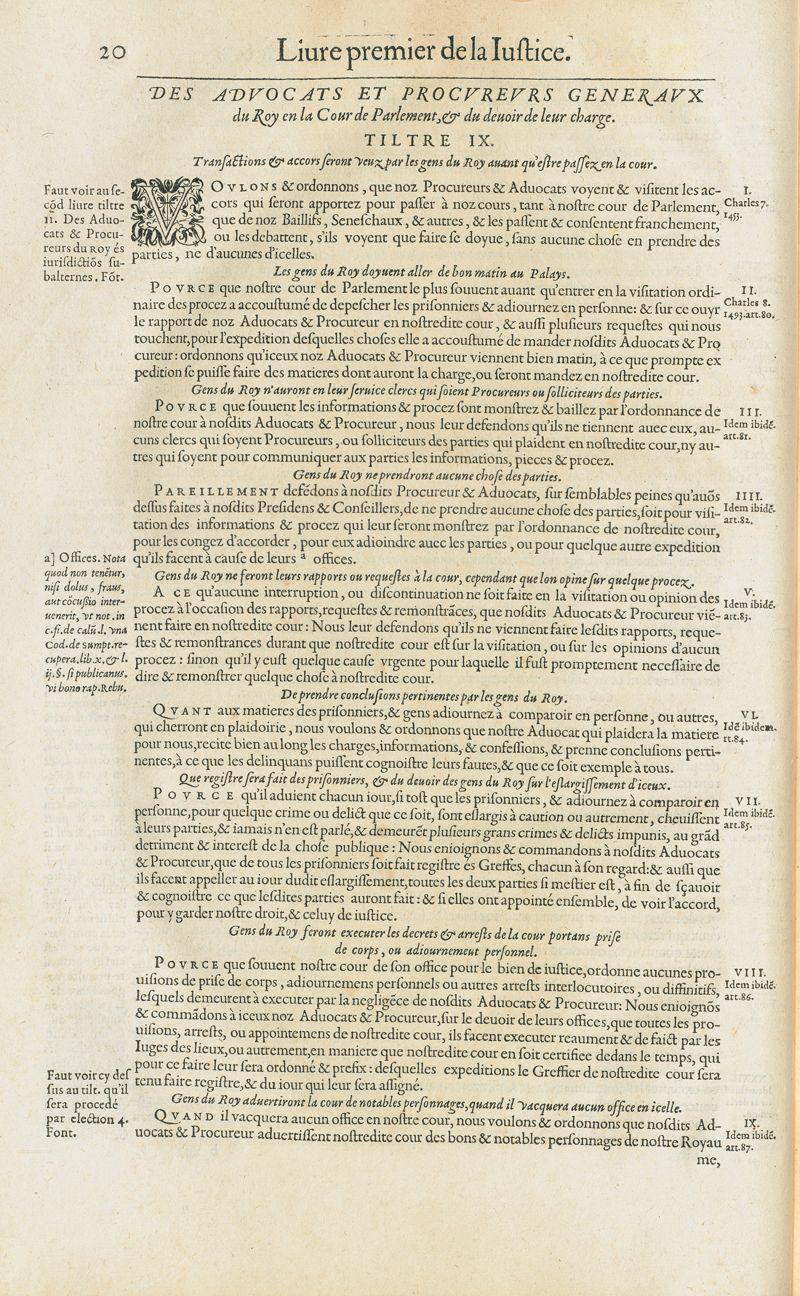 20
Liure premier de la Iuſtice.
DES ADVOCATS ET PROCVREVRS GENERAVX
du Roy en la Cour de Parlement, & du deuoir de leur charge.
TILTRE IX.
Tranſactions & accors ſeront veuz par les gens du Roy auant qu'eſtre paſſez en la cour.
Faut voir au ſe-
cõd liure tiltre
11. Des Aduo-
cats & Procu-
reurs du Roy és
iuriſdictiõs ſu-
balternes. Fõt.
VOVLONS & ordonnons, que noz Procureurs & Aduocats voyent & viſitent les ac-
cors qui ſeront apportez pour paſſer à noz cours, tant à noſtre cour de Parlement,
que de noz Baillifs, Seneſchaux, & autres, & les paſſent & conſentent franchement,
ou les debattent, s'ils voyent que faire ſe doyue, ſans aucune choſe en prendre des
parties, ne d'aucunes d'icelles.
I.
Charles 7.
1453.
Les gens du Roy doyuent aller de bon matin au Palays.
POVRCE que noſtre cour de Parlement le plus ſouuent auant qu'entrer en la viſitation ordi-
naire des procez a accouſtumé de depeſcher les priſonniers & adiournez en perſonne: & ſur ce ouyr
le rapport de noz Aduocats & Procureur en noſtredite cour, & auſſi pluſieurs requeſtes qui nous
touchent, pour l'expedition deſquelles choſes elle a accouſtumé de mander noſdits Aduocats & Pro
cureur: ordonnons qu'iceux noz Aduocats & Procureur viennent bien matin, à ce que prompte ex
pedition ſe puiſſe faire des matieres dont auront la charge, ou ſeront mandez en noſtredite cour.
II.
Charles 8.
1493. art. 80.
Gens du Roy n'auront en leur ſeruice clercs qui ſoient Procureurs ou ſolliciteurs des parties.
POVRCE que ſouuent les informations & procez ſont monſtrez & baillez par l'ordonnance de
noſtre cour à noſdits Aduocats & Procureur, nous leur defendons qu'ils ne tiennent auec eux, au-
cuns clercs qui ſoyent Procureurs, ou ſolliciteurs des parties qui plaident en noſtredite cour, ny au-
tres qui ſoyent pour communiquer aux parties les informations, pieces & procez.
III.
Idem ibidẽ.
art. 81.
Gens du Roy ne prendront aucune choſe des parties.
PAREILLEMENT defẽdons à noſdits Procureur & Aduocats, ſur ſemblables peines qu'auõs
deſſus faites à noſdits Preſidens & Conſeillers, de ne prendre aucune choſe des parties, ſoit pour viſi-
tation des informations & procez qui leur ſeront monſtrez par l'ordonnance de noſtredite cour,
pour les congez d'accorder, pour eux adioindre auec les parties, ou pour quelque autre expedition
qu'ils facent à cauſe de leurs ᵃ offices.
IIII.
Idem ibidẽ.
art. 82.
a] Offices. Nota
quod non tenẽtur,
niſi dolus, fraus,
aut cõcuſſio inter-
uenerit, vt not. in
c. fi. de calũ. l. vna
Cod. de ſumpt. re-
cupera. lib. x. & l.
ij. §. ſi publicanus.
vi bono rap. Rebu.
Gens du Roy ne feront leurs rapports ou requeſtes à la cour, cependant que lon opine ſur quelque procez.
A CE qu'aucune interruption, ou diſcontinuation ne ſoit faite en la viſitation ou opinion des
procez à l'occaſion des rapports, requeſtes & remõſtrãces, que noſdits Aduocats & Procureur viẽ-
nent faire en noſtredite cour: Nous leur defendons qu'ils ne viennent faire leſdits rapports, reque-
ſtes & remonſtrances durant que noſtredite cour eſt ſur la viſitation, ou ſur les opinions d'aucun
procez: ſinon qu'il y euſt quelque cauſe vrgente pour laquelle il fuſt promptement neceſſaire de
dire & remonſtrer quelque choſe à noſtredite cour.
V.
Idem ibidẽ.
art. 83.
De prendre concluſions pertinentes par les gens du Roy.
QVANT aux matieres des priſonniers, & gens adiournez à comparoir en perſonne, ou autres,
qui cherront en plaidoirie, nous voulons & ordonnons que noſtre Aduocat qui plaidera la matiere
pour nous, recite bien au long les charges, informations, & confeſſions, & prenne concluſions perti-
nentes, à ce que les delinquans puiſſent cognoiſtre leurs fautes, & que ce ſoit exemple à tous.
VI.
Idẽ ibidem.
rt. 84.
Que regiſtre ſera fait des priſonniers, & du deuoir des gens du Roy ſur l'eſlargiſſement d'iceux.
POVRCE qu'il aduient chacun iour, ſi toſt que les priſonniers, & adiournez à comparoir en
perſonne, pour quelque crime ou delict que ce ſoit, ſont eſlargis à caution ou autrement, cheuiſſent
à leurs parties, & iamais n'en eſt parlé, & demeurẽt pluſieurs grans crimes & delicts impunis, au grãd
detriment & intereſt de la choſe publique: Nous enioignons & commandons à noſdits Aduocats
& Procureur, que de tous les priſonniers ſoit fait regiſtre és Greffes, chacun à ſon regard: & auſſi que
ils facent appeller au iour dudit eſlargiſſement, toutes les deux parties ſi meſtier eſt, à fin de ſçauoir
& cognoiſtre ce que leſdites parties auront fait: & ſi elles ont appointé enſemble, de voir l'accord,
pour y garder noſtre droit, & celuy de iuſtice.
VII.
Idem ibidẽ.
art. 85.
Gens du Roy feront executer les decrets & arreſts de la cour portans priſe
de corps, ou adiournemeut perſonnel.
POVRCE que ſouuent noſtre cour de ſon office pour le bien de iuſtice, ordonne aucunes pro-
uiſions de priſe de corps, adiournemens perſonnels ou autres arreſts interlocutoires, ou diffinitifs,
leſquels demeurent à executer par la negligẽce de noſdits Aduocats & Procureur: Nous enioignõs
& commãdons à iceux noz Aduocats & Procureur, ſur le deuoir de leurs offices, que toutes les pro-
uiſions, arreſts, ou appointemens de noſtredite cour, ils facent executer reaument & de faict par les
Iuges des lieux, ou autrement, en maniere que noſtredite cour en ſoit certifiee dedans le temps, qui
pour ce faire leur ſera ordonné & prefix: deſquelles expeditions le Greffier de noſtredite cour ſera
tenu faire regiſtre, & du iour qui leur ſera aſſigné.
VIII.
Idem ibidẽ.
art. 86.
Faut voir cy deſ
ſus au tilt. qu'il
ſera procedé
par election 4.
Font.
Gens du Roy aduertiront la cour de notables perſonnages, quand il vacquera aucun office en icelle.
QVAND il vacquera aucun office en noſtre cour, nous voulons & ordonnons que noſdits Ad-
uocats & Procureur aduertiſſent noſtredite cour des bons & notables perſonnages de noſtre Royau
IX.
Idem ibidẽ.
art. 87.
me,